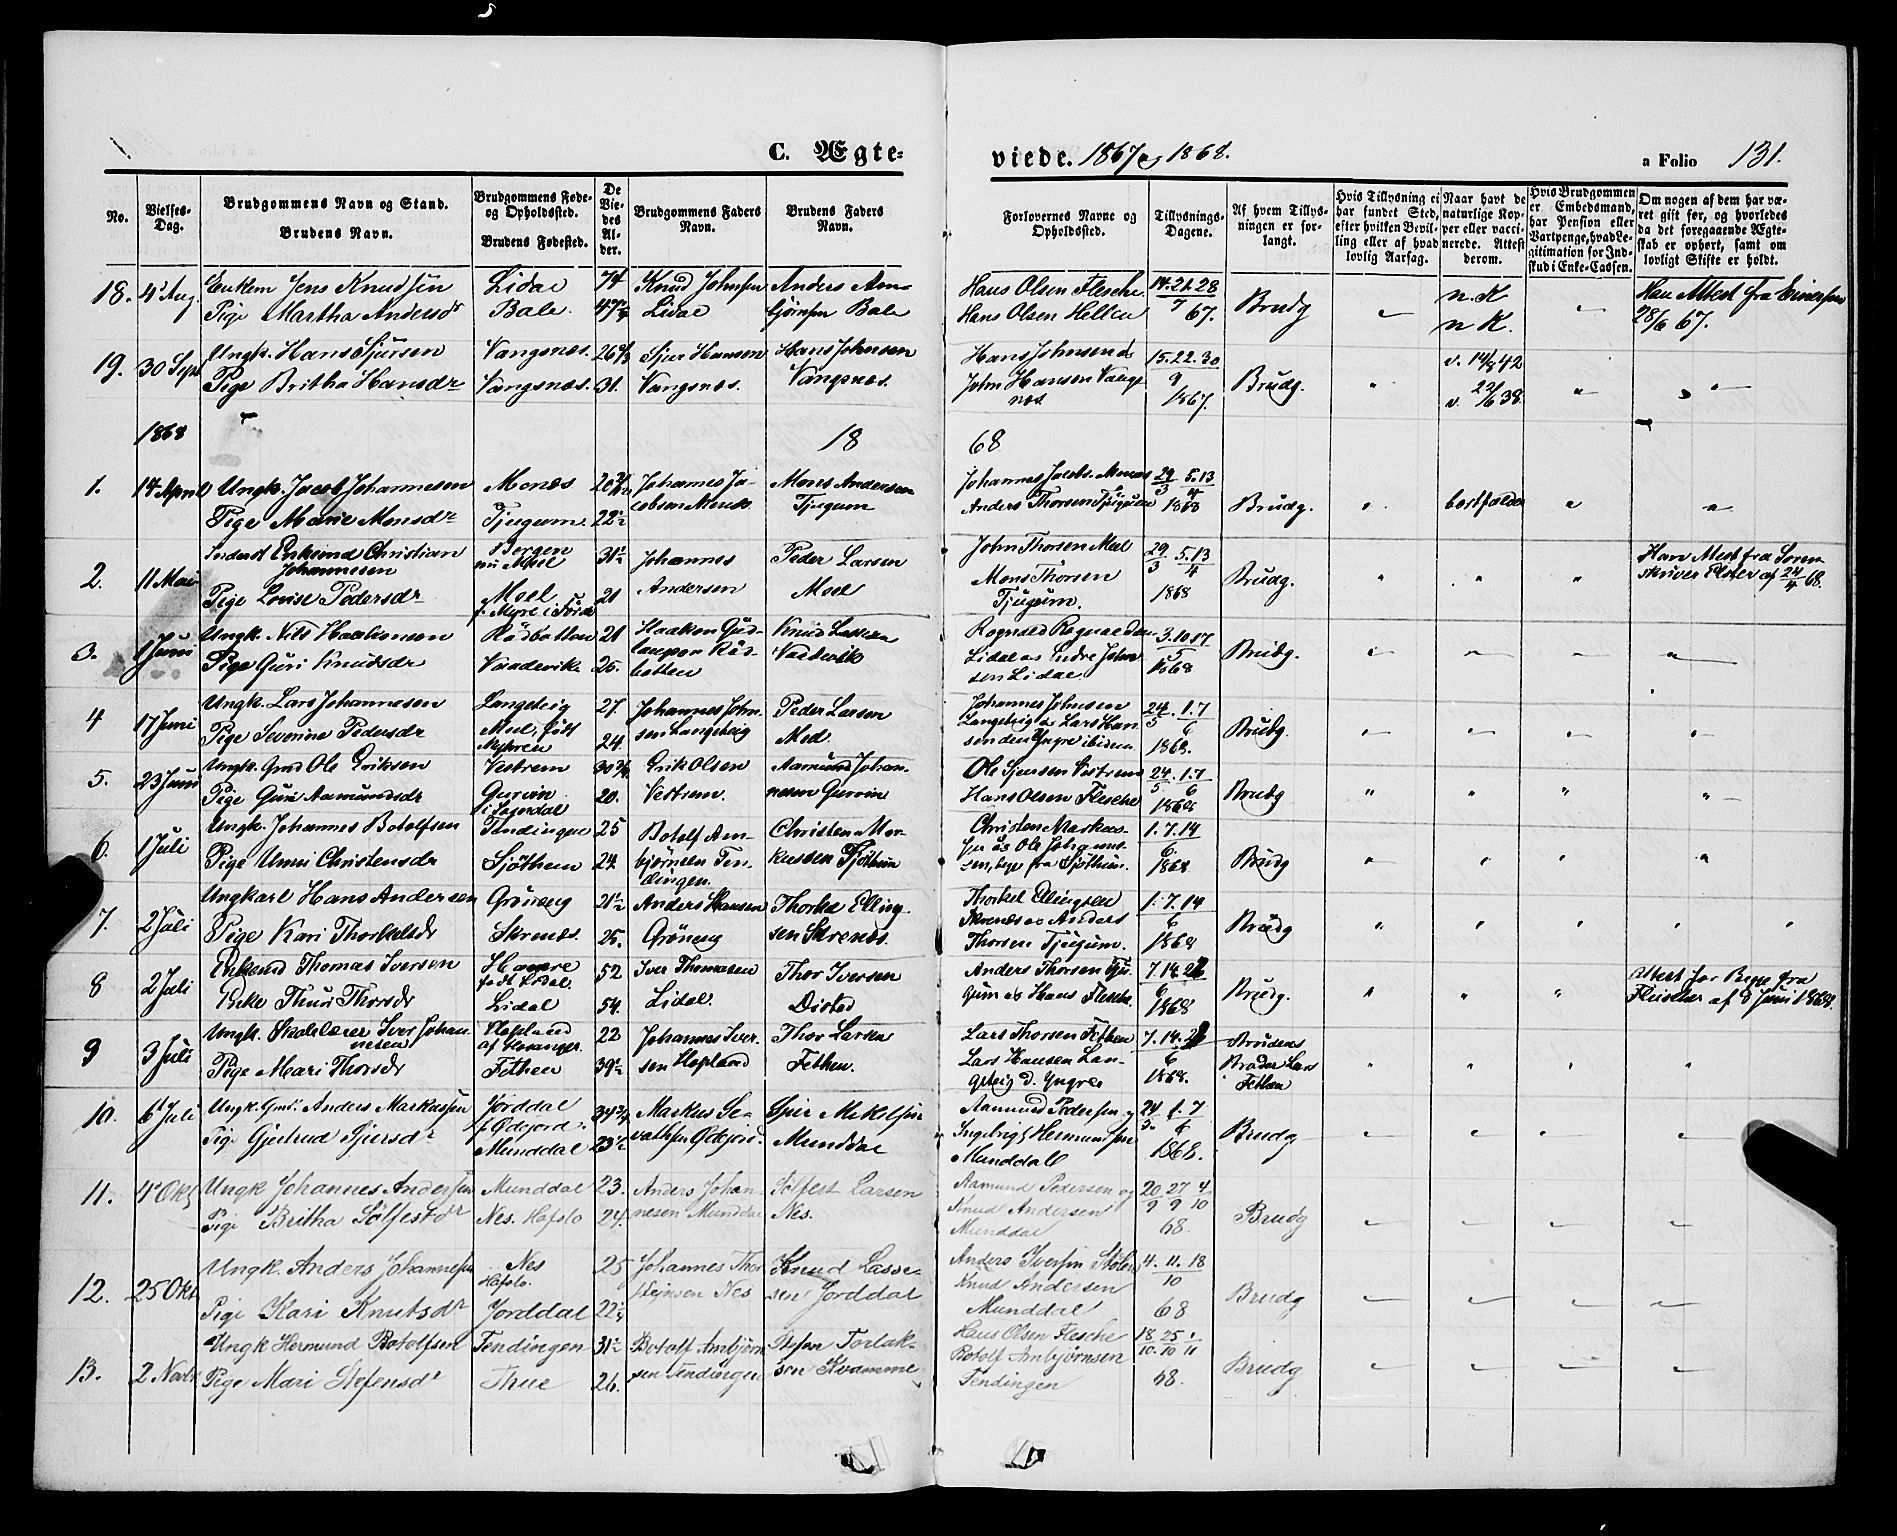 C. Ægte-
viede. 1867 og 1868.
a Folio 131.
No.
Vielses-Dag.
Brudgommens Navn og Stand.
Brudens Navn.
Brudgommens Føde- og Opholdssted.
Brudens Fødested.
De Viedes Alder.
Brudgommens Faders Navn.
Brudens Faders Navn.
Forlovernes Navne og Opholdssted.
Tillysnings-Dagene.
Af hvem Tillysningen er forlangt.
Hvis Tillysning ei har fundet Sted, efter hvilken Bevilling eller af hvad lovlig Aarsag.
Naar havt de naturlige Kopper eller vaccinerede. Attest derom.
Hvis Brudgommen er Embedsmand, har Pension eller Vartpenge, hvad Legitimation for Indskud i Enke-Cassen.
Om nogen af dem har været gift før, og hvorledes da det foregaaende Ægteskab er ophørt, samt om lovligt Skifte er holdt.
18. 4' Aug. Enkem Jens Knudsen Lidal 74 Knud Johnsen Anders Am- Hans Olsen Flesche 14. 21. 28 n. K Har Attest fra
Pige Martha Andersdr Bale 47½ Lidal bjørnsen Bale Hans Olsen Hellen 7 67. Brudg n K. 28/6 67.
19. 30 Sept Ungk. Hans Sjursen Vangsnes. 26 Sjur Hansen Hans Johnsen Hans Johnsen & 15. 22. 30 v. 14/9 42
Pige Britha Hansdr Vangsnes. 31. Vangsnes. Vangsnes John Hansen Vangsnes 9 1867. Brudg. v. 22/6 38
1868 18 68
1. 14 April Ungk. Jacob Johannesen Menes 20 Johannes Ja- Mons Andersen Johannes Jacobs. Menes 29/3 5.13/4
Pige Marie Monsdr Tjugum 22½ cobsen Menes Tjugum Anders Thorsen Tjugum 1868 Brudg. bortfalder
2. 11 Mai Inderst Enkemd Christian Johannesen Bergen nu Meel 31½ Johannes Peder Larsen John Thorsen Meel 29/3 5.13/4 Har Attest fra Soren-
Pige Lovise Pedersdr Moel f. Myre i Førde 21 Andersen Moel Mons Thorsen Tjugum. 1868 Brudg. skriver Elster af 24/4 68.
3. 1 Juni Ungk. Nils Haakonsen Rødbotten 28 Haakon Gud- Knud Lassen 3.10.17
Pige Guri Knudsdr Vaadevik 25. laugson Rødbotten Vaadevik Lidal & Endre Johnsen Lidal 5 1868 Brudg.
4 17 Juni Ungk. Lars Johannesen Langeteig 27. Johannes John- Peder Larsen Johannes Johnsen 24/5 1.7/6
Pige Severine Pedersdr Meel, født Myhren 24. sen Langeteig Meel Langeteig & Lars Hansen den Yngre ibidem 1868. Brudg.
5. 23 Juni Ungk. Gmd Ole Eriksen Vestrem 30 Erik Olsen Aamund Johan- Ole Sjursen Vestrem 24/5 1.7/6
Pige Guri Aamundsdr Gurvin i Sogndal 20. Vestrem. nesen Gurvin Hans Olsen Flesche 1868 Brudg
6. 1 Juli Ungk. Johannes Botolfsen Tendingen 25 Botolf Am- Christen Mar- Christen Markus- 1.7.14
Pige Unni Christensdr Sjøthun 24. bjørnsen Tendingen. kussen Sjøthun sen & Ole Johannessen, bege fra Sjøthun. 6. 1868 Brudg
7. 2 Juli Ungkarl Hans Andersen Grøneng 21½ Anders Hansen Thorkel Elling- Thorkel Ellingsen 1.7.14
Pige Kari Thorkelsdr Skrenes. 25. Grøneng sen Skrenes. Skrenes & Anders Thorsen Tjugum. 6 1868 Brudg
8 2 Juli Enkemd Thomas Iversen født Lidal 52 Iver Thomasen Thor Iversen Anders Thorsen Tju- 7.14.21 Attest for Begge fra
Enke Thuri Thorsdr Lidal 54. Lidal. gum & Hans Flesche. 6 1868 Brudg. Fleischer af 9 Juni 1868.
9 3 Juli Ungk. Skolelærer Iver Johannesen Hopland af Hosanger. 22 Johannes Iver- Thor Larsen Lars Thorsen Fethen 7.14.21 Brudens
Pige Mari Thorsdr Fethen 39½ sen Hopland Fethen. Lars Hansen Langeteig d. Yngre 6 1868. Broder Lars Fethen
10. 6' Juli Ungk. Gmd. Anders Markussen Jorddal f. Ødejord. 34¾ Markus Se- Sjur Mikelsen Aamund Pedersen 24/5 1.7/6
Pige Gjertrud Sjursdr Munddal 23½ vatsen Ødejord. Munddal Ingebrigt Hermundsen Munddal 1868. Brudg
11. 4' Okt Ungk Johannes Andersen Munddal 23. Anders Johan- Sølfest Larsen Aamund Pedersen og 20/9 27/9 4/10
Pige Britha Sølfestdr Nes. Hafslo 24. nesen Munddal Nes. Knud Andersen Munddal 68. Brudg
12. 25 Okt Ungk. Anders Johannesen Nes Hafslo. 25 Johannes Thor- Knud Lasse- Anders Iversen 4. 11. 18
Pige Kari Knutsdr Jorddal 22½ stejnsen Nes sen Jorddal Knud Andersen Munddal 10 68 Brudg
13. 2 Novbr Ungk Hermund Botolfsen Tendingen 31½ Botolf Ambjørn- Stefen Torlak- Hans Olsen Flesche 18/10 25/10 1/11
Pige Mari Stefensdr Thue 26. sen Tendingen sen Kvamme Botolf Ambjørnsen Tendingen 68. Brudg